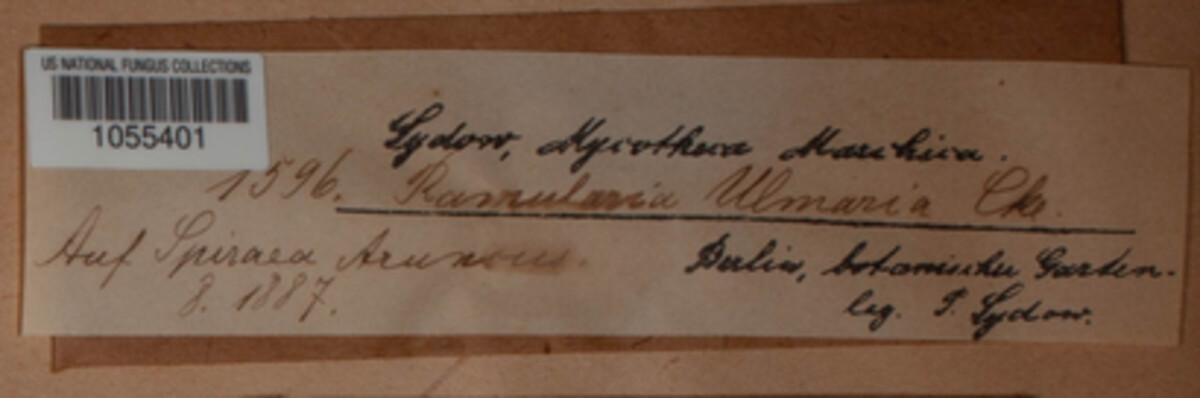 US NATIONAL FUNGUS COLLECTIONS
1055401
Sydow, Mycotheca Marchica.
1596. Ramularia Ulmaria Cke.
Auf Spiraea Aruncus.
8. 1887.
Berlin, botanischer Garten.
leg. P. Sydow.